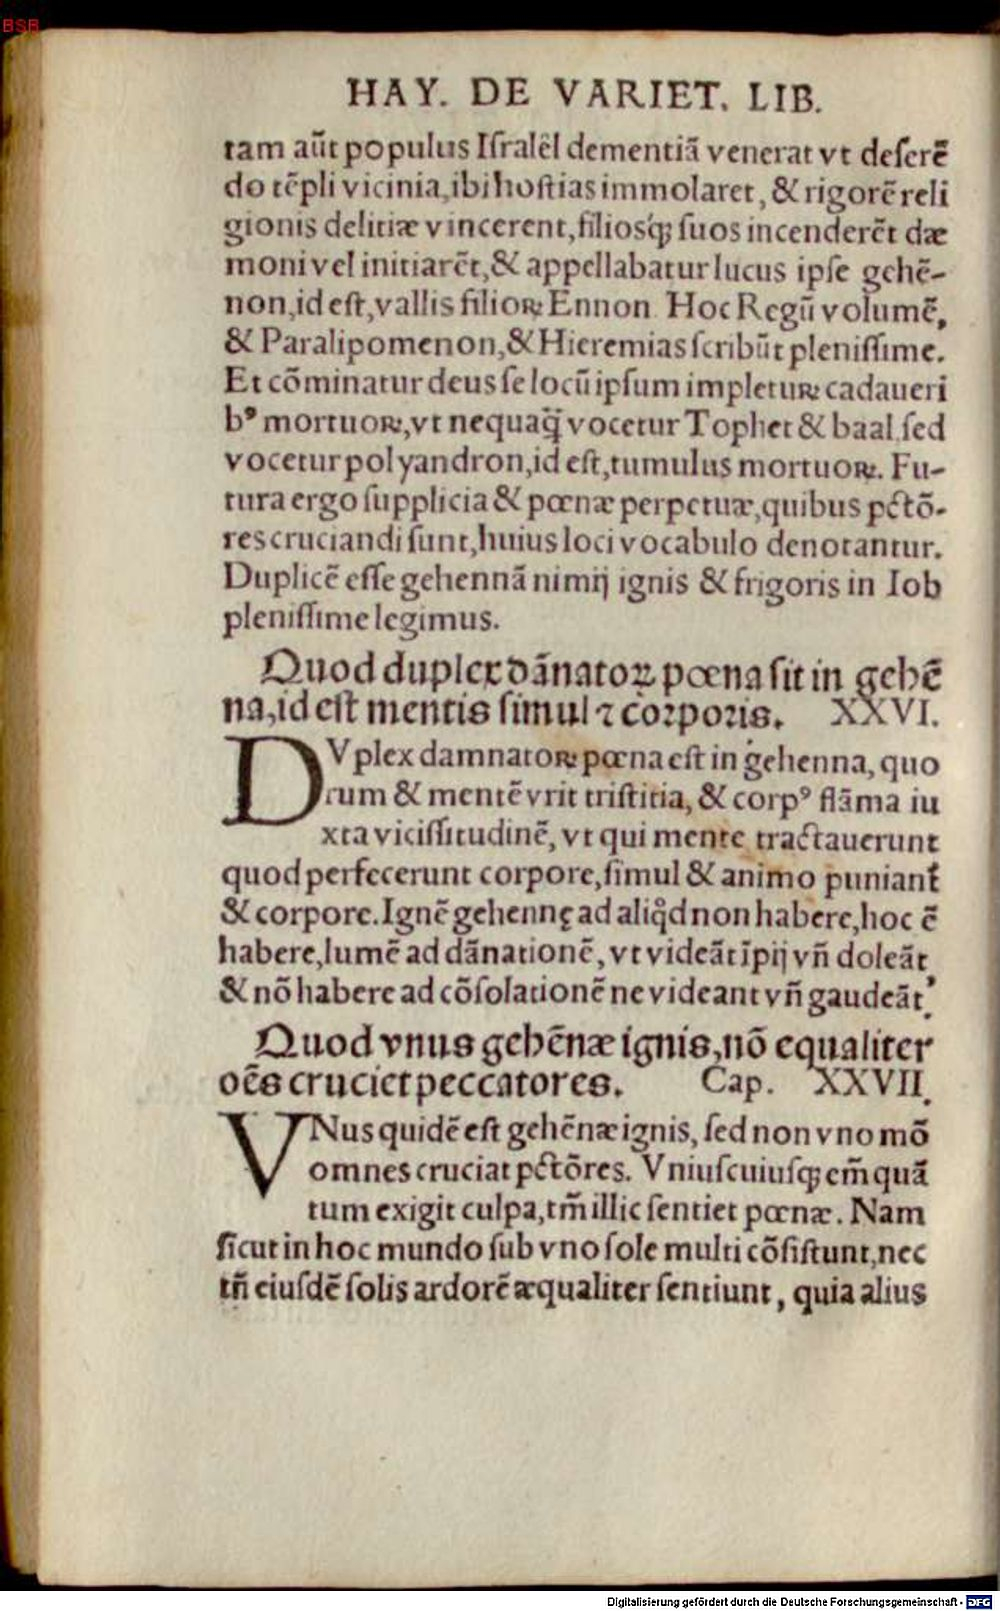 BSB
HAY. DE VARIET. LIB.
tam aūt populus Iſraľel dementiā venerat vt deſerē
do tēpli vicinia,ibi hoſtias immolaret, & rigorē reli
gionis delitiæ vincerent,filiosq́ꝫ ſuos incenderēt dæ
moni vel initiarēt,& appellabatur lucus ipſe gehē-
non,id eſt,vallis filioꝝ Ennon. Hoc Regū volumē,
& Paralipomenon,& Hieremias ſcribūt pleniſſime.
Et cōminatur deus ſe locū ipſum impletuꝝ cadaueri
bꝰ mortuoꝝ,vt nequaq̄̃ vocetur Tophet & baal,ſed
vocetur polyandron,id eſt,tumulus mortuoꝝ. Fu-
tura ergo ſupplicia & pœnæ perpetuæ,quibus pctō-
res cruciandi ſunt,huius loci vocabulo denotantur.
Duplicē eſſe gehennā nimij ignis & frigoris in Iob
pleniſſime legimus.
Quod duplex dānatoꝝ pœna ſit in gehē
na,id eſt mentis ſimul ⁊ corporis. XXVI.
DVplex damnatoꝝ pœna eſt in gehenna, quo
rum & mentē vrit triſtitia, & corpꝰ flāma iu
xta viciſſitudinē, vt qui mente tractauerunt
quod perfecerunt corpore,ſimul & animo puniant̃
& corpore.Ignē gehennę ad aliq̇d non habere,hoc ē
habere,lumē ad dānationē, vt videāt īpij vñ doleāt,
& nō habere ad cōſolationē ne videant vñ gaudeāt.
Quod vnus gehēnæ ignis,nō equaliter
oēs cruciet peccatores. Cap. XXVII.
VNus quidē eſt gehēnæ ignis, ſed non vno mō
omnes cruciat pctōres. Vniuſcuiuſqꝫ em̄ quā
tum exigit culpa,tm̄ illic ſentiet pœnæ. Nam
ſicut in hoc mundo ſub vno ſole multi cōſiſtunt,nec
tñ eiuſdē ſolis ardorē æqualiter ſentiunt, quia alius
Digitalisierung gefördert durch die Deutsche Forschungsgemeinschaft - DFG